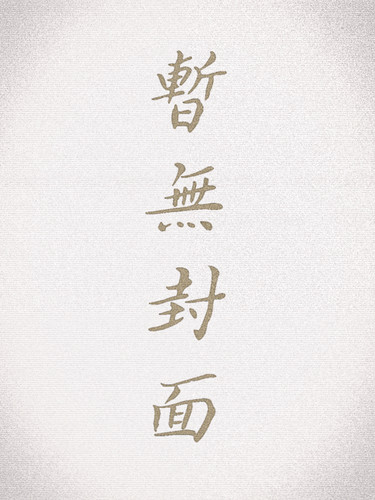 暫無封面